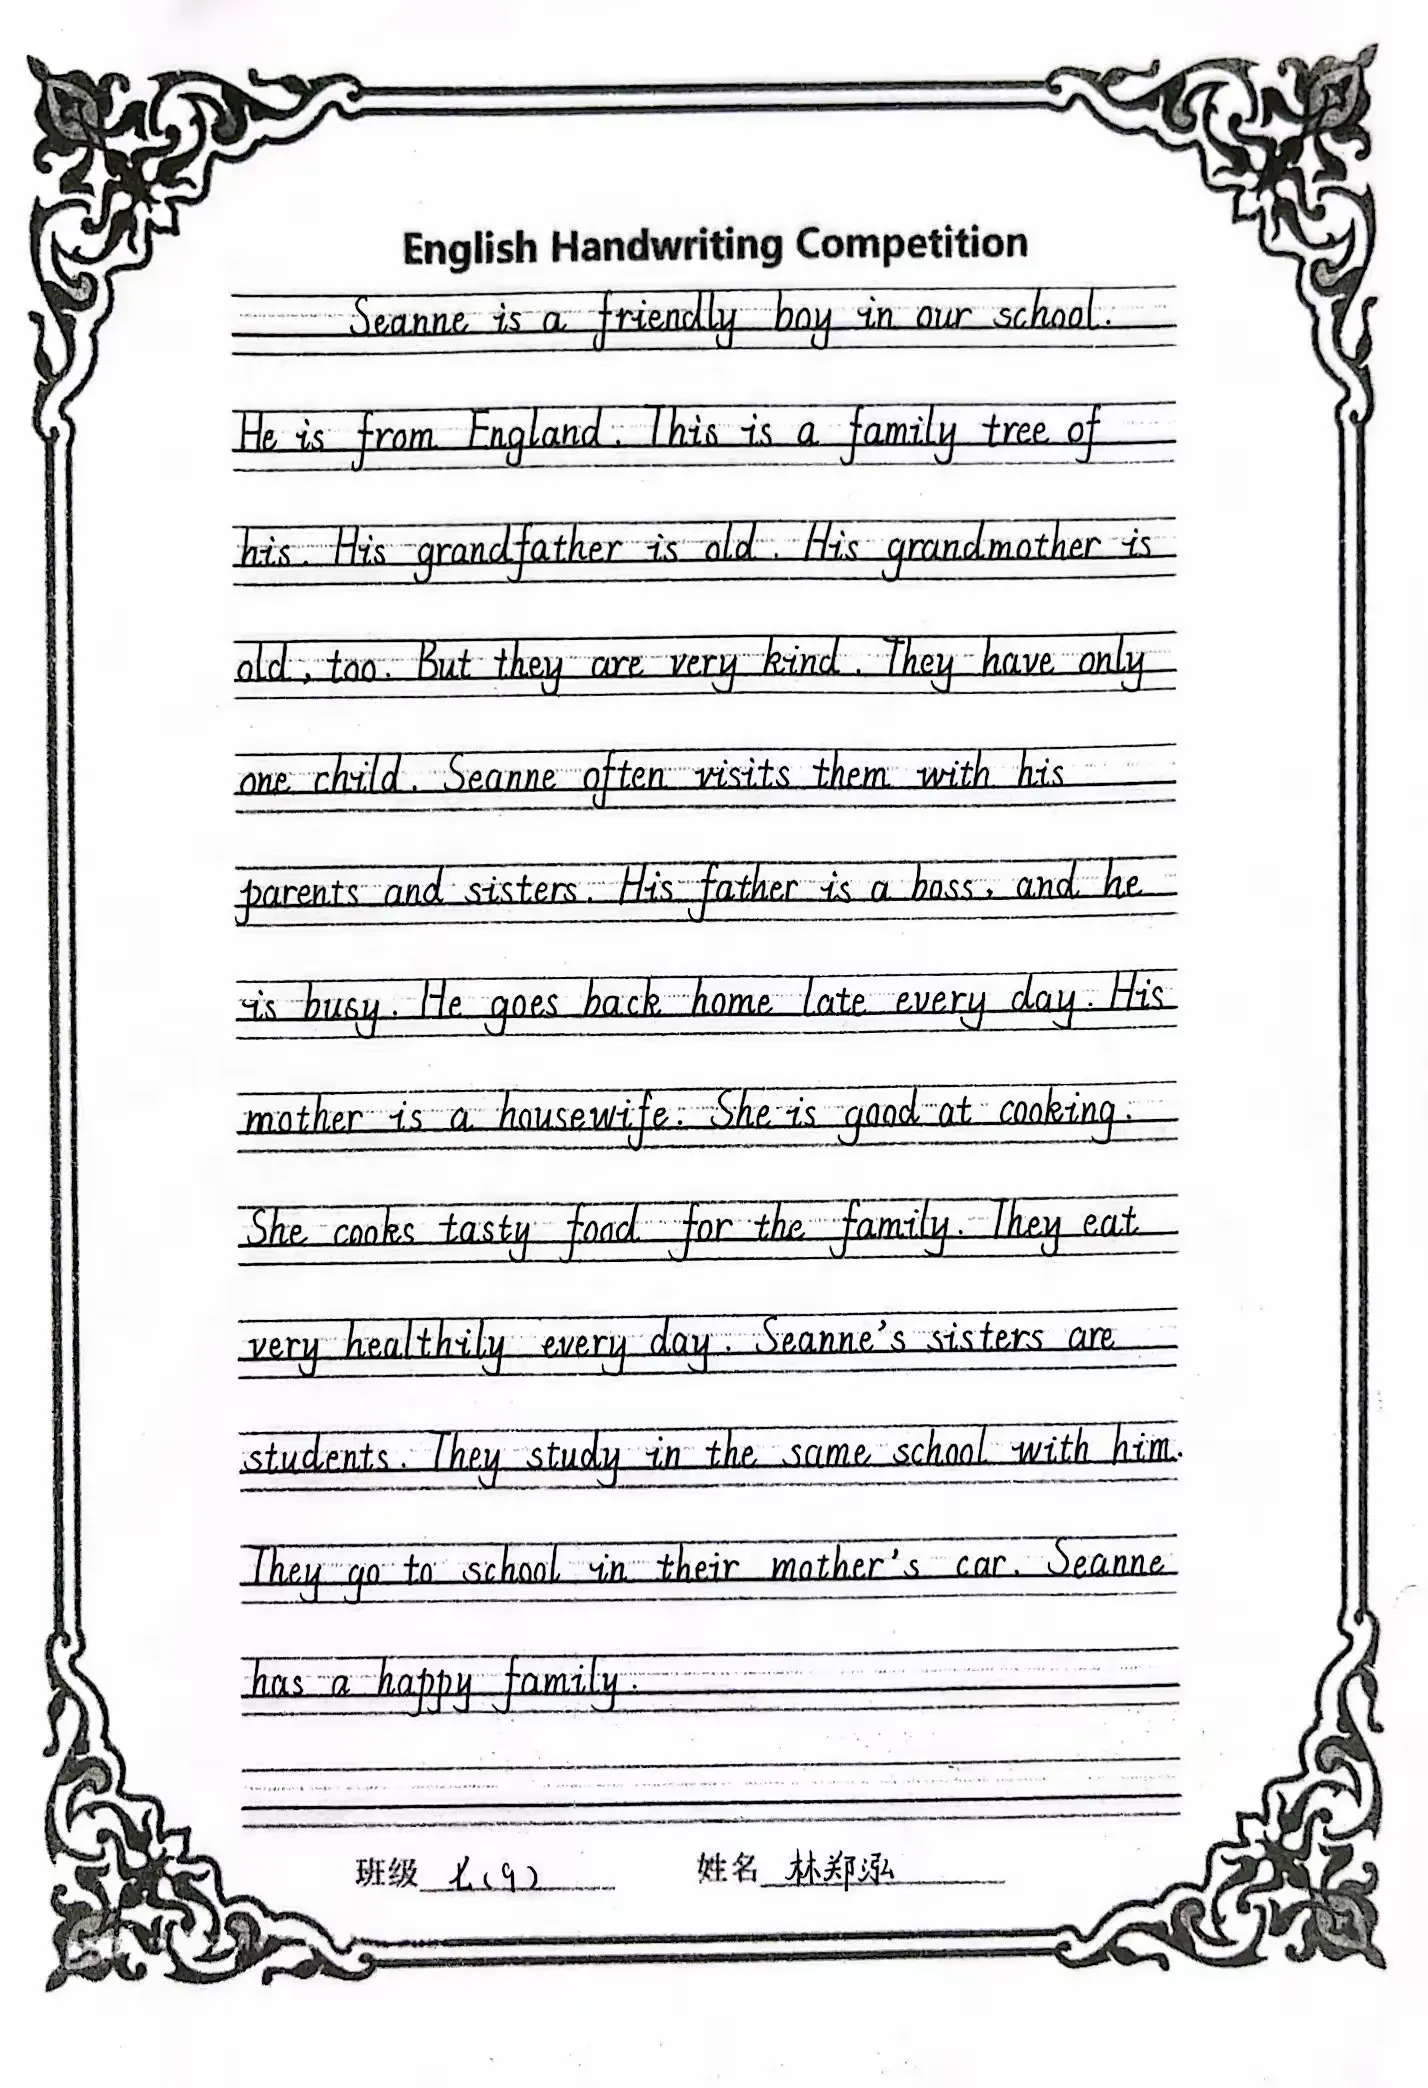 English Handwriting Competition
Seanne is a friendly boy in our school.
He is from England. This is a family tree of
his. His grandfather is old. His grandmother is
old, too. But they are very kind. They have only
one child. Seanne often visits them with his
parents and sisters. His father is a boss, and he
is busy. He goes back home late every day. His
mother is a housewife. She is good at cooking.
She cooks tasty food for the family. They eat
very healthily every day. Seanne's sisters are
students. They study in the same school with him.
They go to school in their mother's car. Seanne
has a happy family.
班级 七(9) 姓名 林郑泓